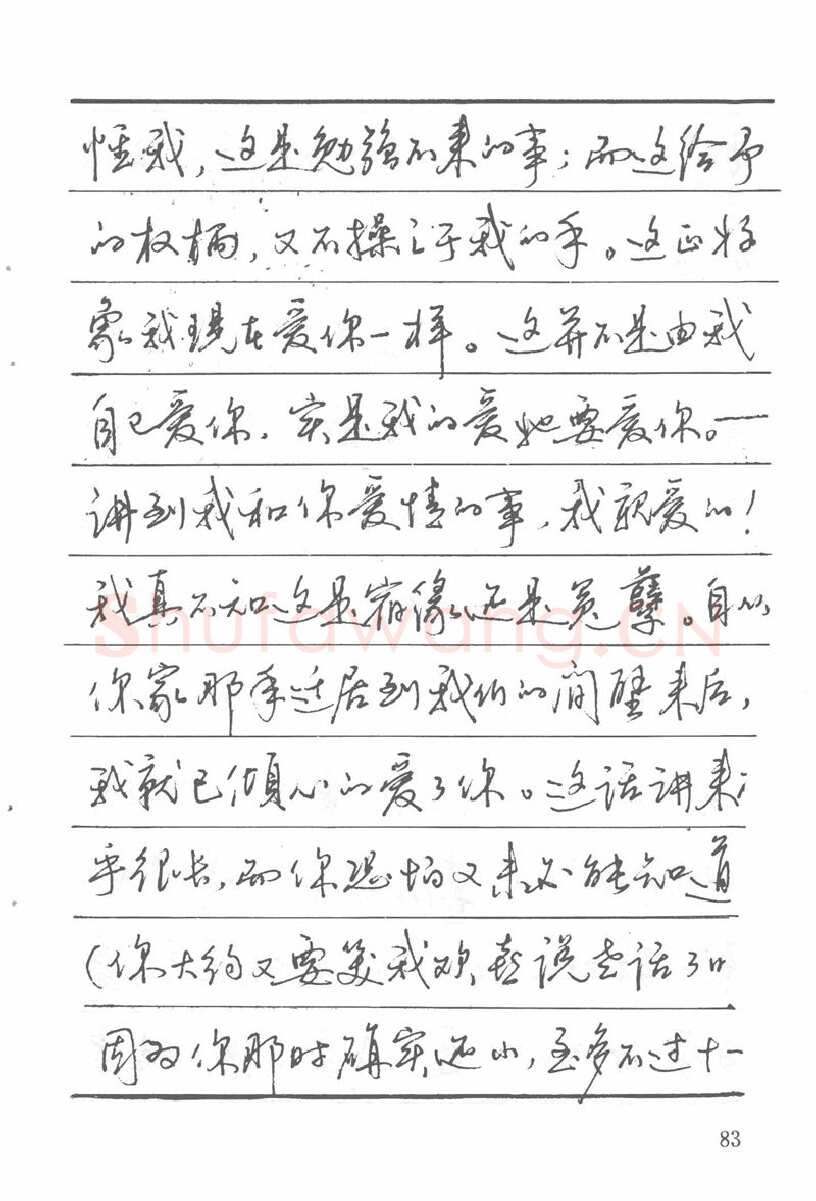 怪我，这是勉强不来的事；而这给予
的权柄，又不操之于我的手。这正好
象我现在爱你一样。这并不是由我
自己爱你，实是我的爱她要爱你。—
讲到我和你爱情的事，我亲爱的！
我真不知这是宿缘还是冤孽。自从
你家那年迁居到我们的间壁来后，
我就已倾心的爱了你。这话讲来
乎很长，而你恐怕又未必能知道
（你大约又要笑我欢喜说老话了
因为你那时确实还小，至多不过十一
83
Shufawang.CN